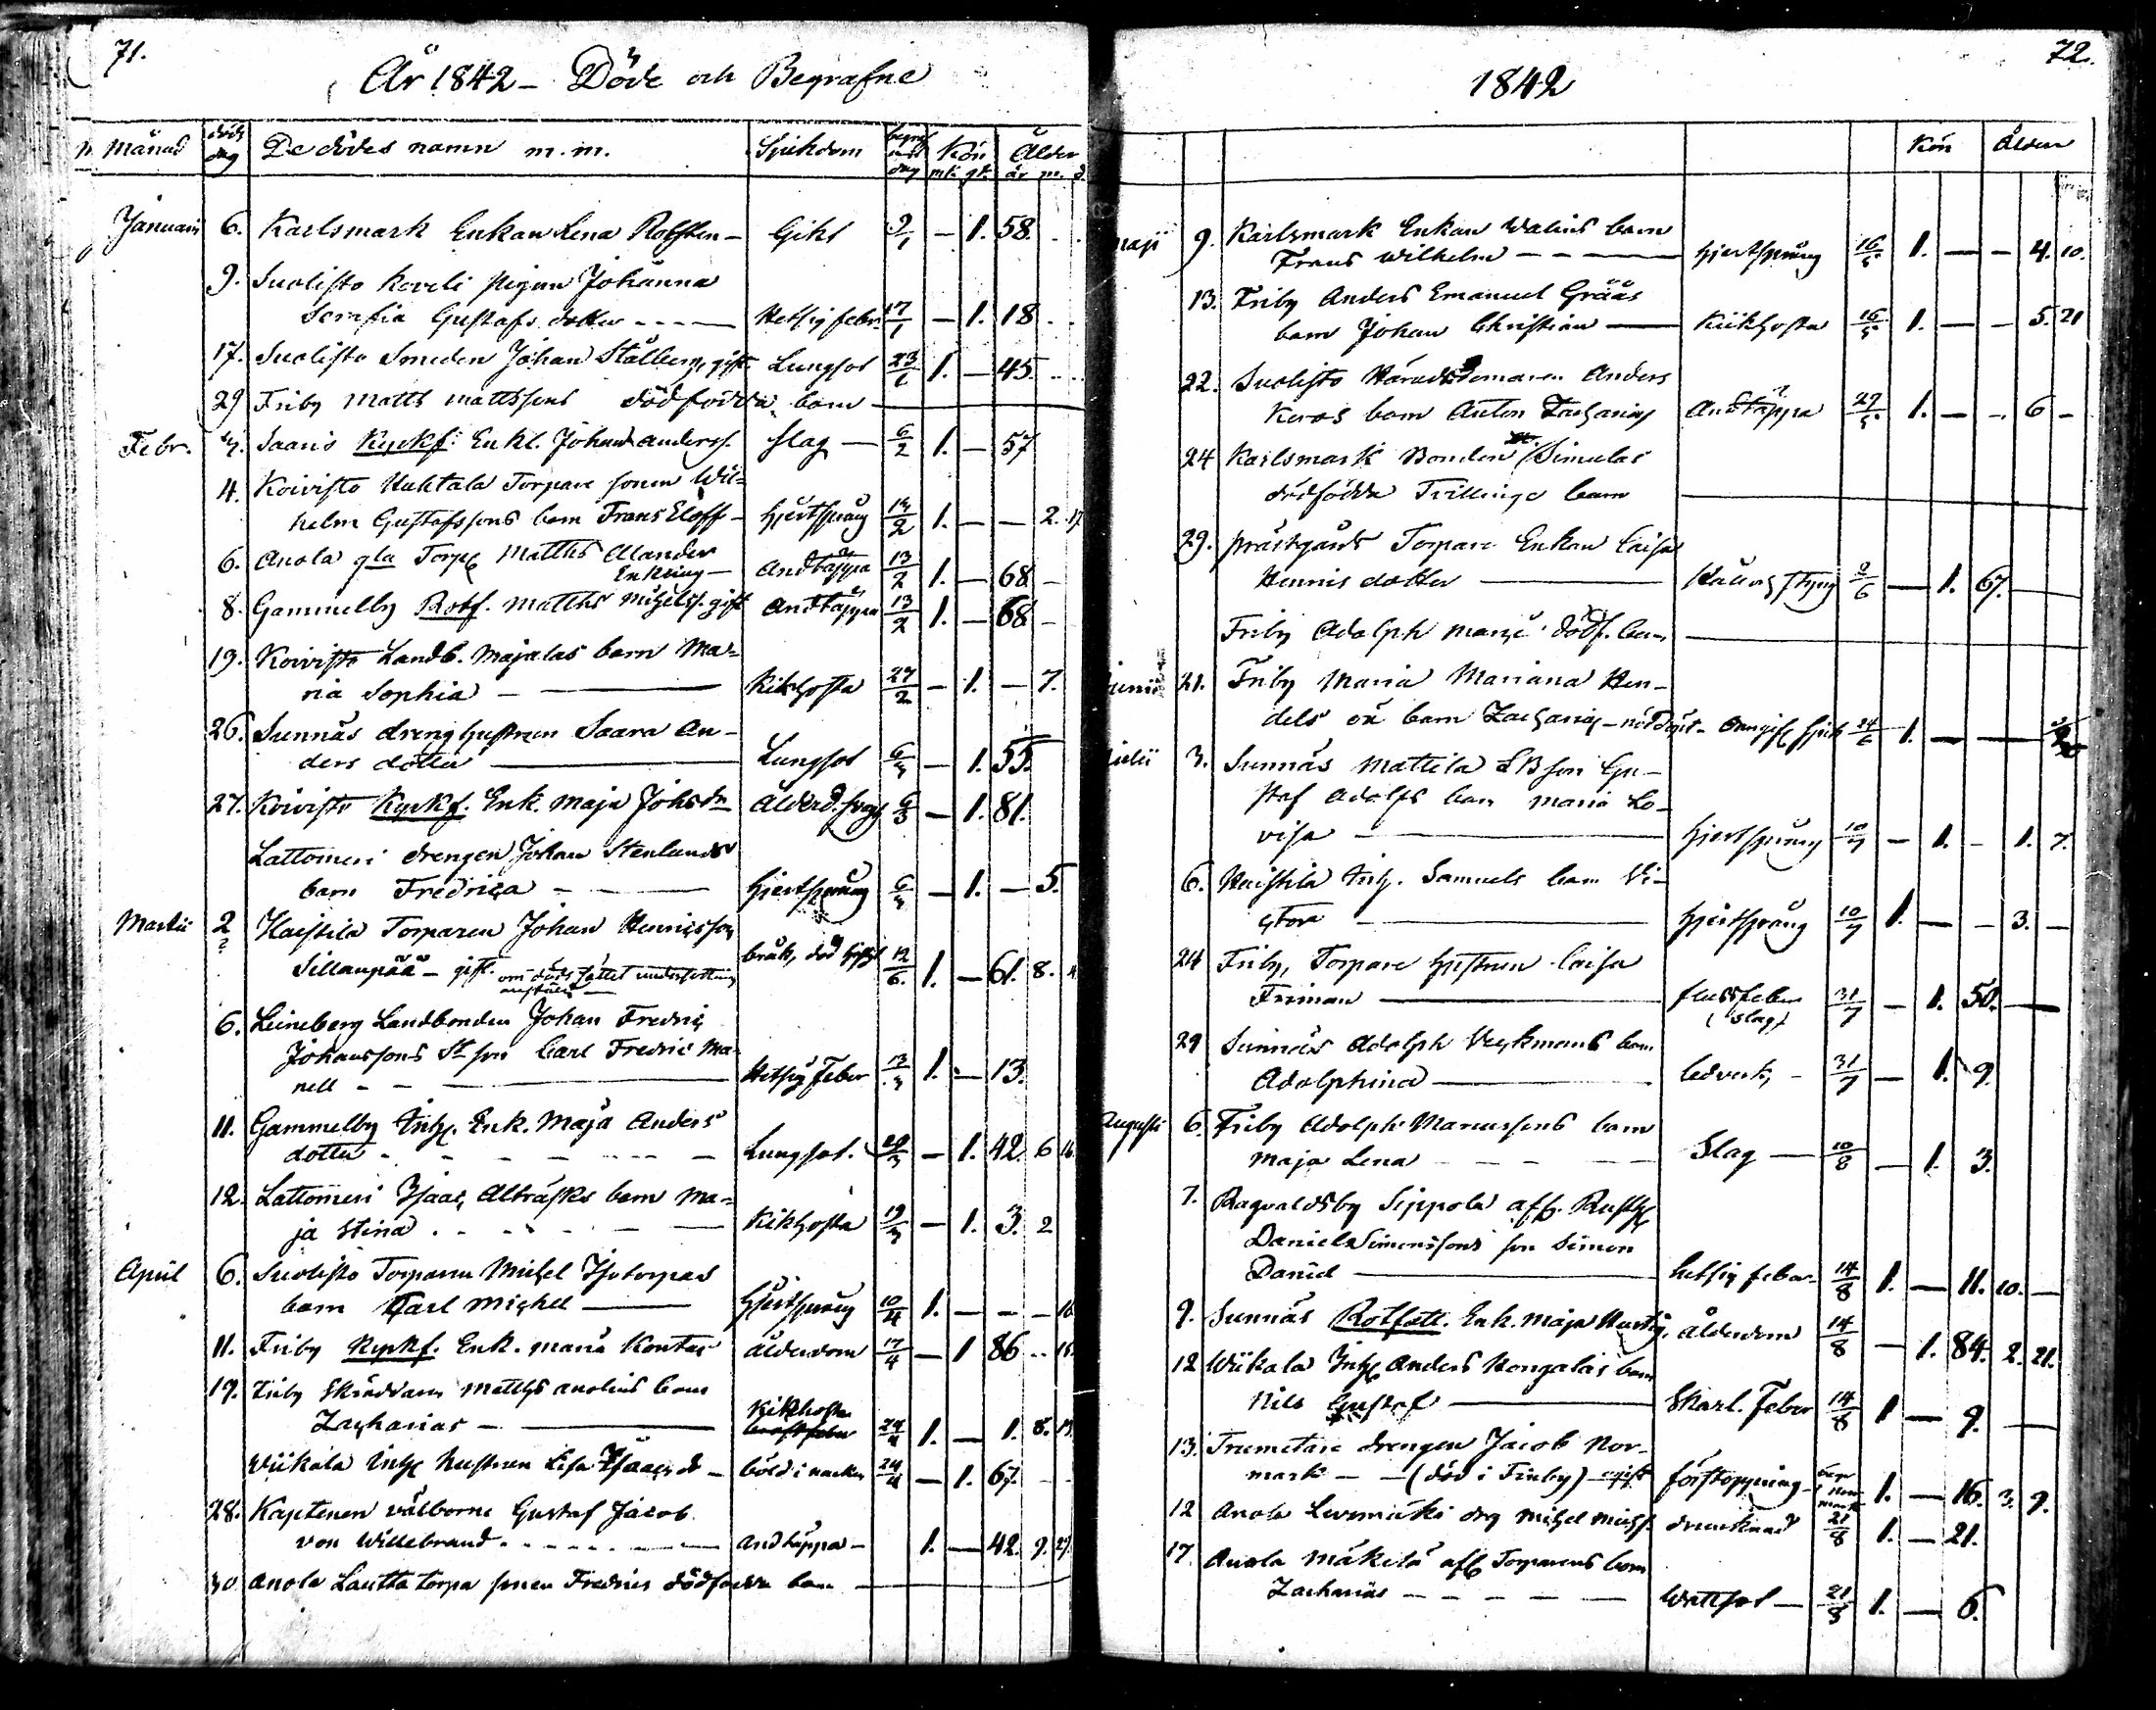 71.
År 1842 - Döde och Begrafne
Månad döds dag De dödes namn m.m. Sjukdom begraf dag Kön Ålder
mk. qk. år m. d.
Januarii 6. Karlsmark Enkan Lena Rotsten - Gikt 9/1 - 1. 58.
9. Suolisto Koveli pigan Johanna
Serafia Gustafs dotter - - - Hetsig feber 17/1 - 1. 18
17. Suolisto Smeden Johan Stålberg, gift Lungsot 23/1 1. - 45.
29 Friby Matts Mattssons dödfödda barn
Febr. 3. Saaris Kyrkf. Enkl. Johan Anderss. Slag - 6/2 1. - 57
4. Koivisto Uuktala Torpare sonen Wil-
helm Gustafssons barn Frans Eloff - hjertsprång 13/2 1. - - 2. 17
6. Anola gla Torp. Matths Alander
Enkling - Andtäppa 13/2 1. - 68 -
8. Gammelby Rotf. Matths Michelss. gift Andtäppa 13/2 1. - 68 -
19. Koivisto Landb. Majalas barn Ma-
ria Sophia - Kikhosta 27/2 - 1. - 7.
26. Sunnäs dreng hustrun Saara An-
ders dotter Lungsot 6/3 - 1. 55.
27. Koivisto Kyrkf. Enk. Maja Johsdr Ålderd. svagh 6/3 - 1. 81.
Lattomeri drengen Johan Stenlunds
barn Fredrica - hjertsprång 6/3 - 1. - 5.
Martii 2 Haistila Torparen Johan Henricsson
Sillanpää - gift. om dödssättet undersökning
anstäld - bråk, död 12/6. 1. - 61. 8.
6. Leineberg Landbonden Johan Fredric
Johanssons St son Carl Fredric Ma-
nell - - Hetsig Feber 13/3 1. - 13.
11. Gammelby Inh. Enk. Maja Anders
dotter - - - Lungsot. 20/3 - 1. 42. 6 16
12. Lattomeri Isaac Alträsks barn Ma-
ja Stina - - - Kikhosta 19/3 - 1. 3. 2
April 6. Suolisto Torparen Michel Isotorpas
barn Carl Michel Hjertsprång 10/4 1. - - - 16
11. Friby Kyrkf. Enk. Maria Kontas ålderdom 17/4 - 1 86 - 15.
17. Friby Skräddaren Matths Anolins barn
Zacharias - Kikhosta 24/4 1. - 1. 8. 13.
Wiikala Inh. Hustrun Lisa Isaacsdr - böld i nacken 24/4 - 1. 67. - -
28. Kaptenen välborne Gustaf Jacob
von Willebrand - - - andtäppa - 1. - 42. 9. 27.
30. Anola Lautta torpa sonen Fredrics dödfödda barn
72.
1842
Kön Ålder
Maji 9. Karlsmark Enkan Walins barn
Frans Wilhelm - - - hjertsprång 16/5 1. - - 4. 10.
13. Friby Anders Emanuel Grääs
barn Johan Christian - Kikhosta 16/5 1. - - 5. 21
22. Suolisto Häradsdomaren Anders
Keros barn Anton Zacharias Andtäppa 29/5 1. - - 6 -
24 Karlsmark Bonden Simulas
dödfödda Trillinge barn
29. Prästgårds Torpare Enkan Caisa
Henricsdotter Håll och styng 2/6 - 1. 67.
Friby Adolph dödf. barn
Junii 21. Friby Maria Mariana Hen-
dels oä barn Zacharias - nöddöpt - 24/6 1. - -
Julii 3. Sunnäs Mattila LB son Gu-
staf Adolfs barn Maria Lo-
visa hjertsprång 10/7 - 1. - 1. 7.
6. Haistila Inh. Samuels barn Vi-
ctor hjertsprång 10/7 1. - - 3. -
24 Friby, Torpare hustrun Caisa
Friman flussfeber (slag) 31/7 - 1. 50. -
29 Sunnäs Adolph Veckmans barn
Adolphina ledverk - 31/7 - 1. 9.
Augusti 6. Friby Adolph Marcussons barn
Maja Lena - - - Slag - 10/8 - 1. 3.
7. Ragvaldsby Sippola aff. Rusth.
Daniel Simonssons son Simon
Daniel hetsig feber - 14/8 1. - 11. 10. -
9. Sunnäs Rotfatt. Enk. Maja Hurtig. ålderdom 14/8 - 1. 84. 2. 21.
12 Wiikala Inh. Anders Kongalas barn
Nils Gustaf Skarl. Feber 14/8 1 - 9. -
13. Trumetare drengen Jacob Nor-
mark - - (död i Finby) - ogift förstoppning - 1. - 16. 3. 9.
12 Anola Levomäki drg Michel Michss. drunknad 21/8 1. - 21.
17. Anola Mäkelä aff. Torparens barn
Zacharias - - - - - Wattsot - 21/8 1. - 6.